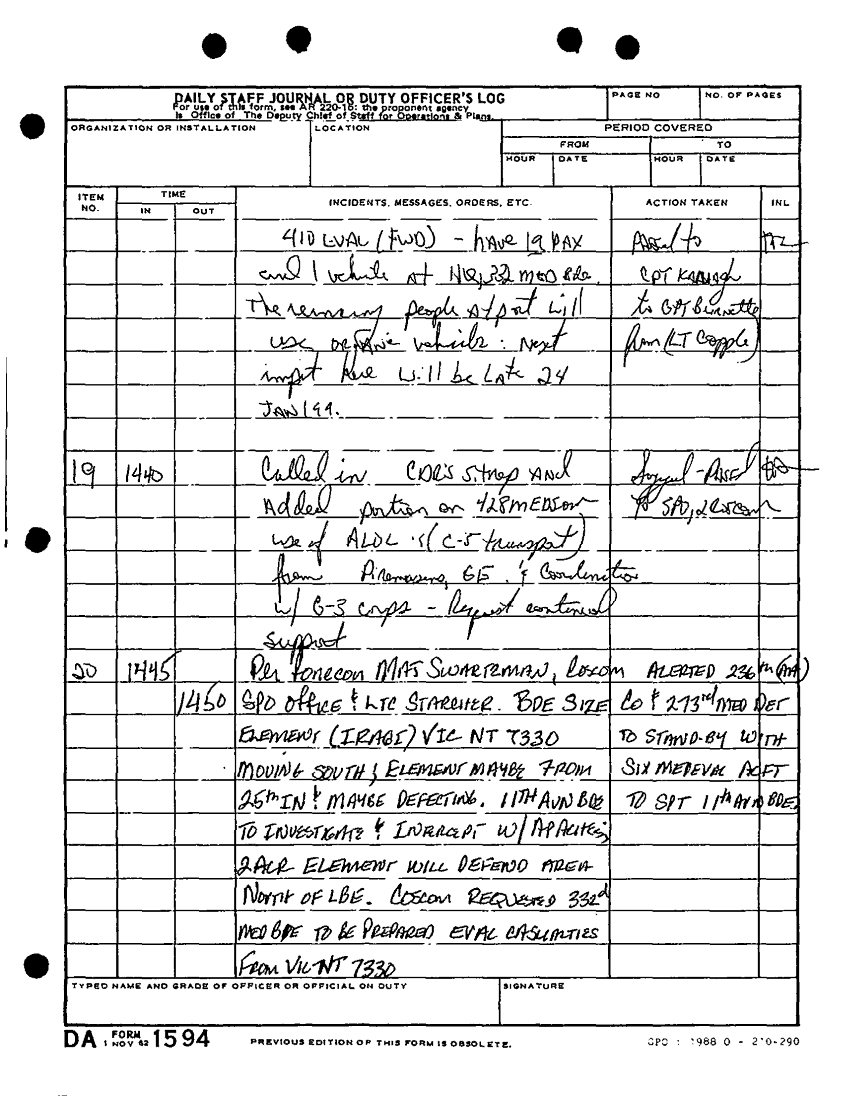 DAILY STAFF JOURNAL OR DUTY OFFICER'S LOG
For use of this form, see AR 220-15: the proponent agency
is Office of The Deputy Chief of Staff for Operations & Plans.
PAGE NO
NO. OF PAGES
ORGANIZATION OR INSTALLATION
LOCATION
PERIOD COVERED
FROM
TO
HOUR DATE HOUR DATE
ITEM NO.
TIME
IN OUT
INCIDENTS, MESSAGES, ORDERS, ETC.
ACTION TAKEN
INL
410 EVAC (FWD) - have 19 PAX to
and 1 vehicle at HQ, 332 MED Bde. CPT
The remaining people at port will to CPT Burnette
use organic vehicles. Next from (LT Copple)
input here will be Late 24
JAN 199.
19 1440 Called in CDR's sitrep AND
Added portion on 428 MEDSOM to SPO, 2 Coscom
use of ALOC's (C-5 transport)
from Pirmasens, GE. & Coordination
w/ G-3 corps - Request continued
support
20 1445 Per fonecon MAJ SWARTZMAN, COSCOM ALERTED 236th (AA)
1450 SPO OFFICE & LTC STARCHER. BDE SIZE CO & 273rd MED DET
ELEMENT (IRAQI) VIC NT 7330 TO STAND-BY WITH
MOVING SOUTH; ELEMENT MAYBE FROM SIX MEDEVAC ACFT
25th IN & MAYBE DEFECTING. 11TH AVN BDE TO SPT 11th AVN BDE.
TO INVESTIGATE & INTERCEPT W/ APACHES;
2ACR ELEMENT WILL DEFEND AREA
NORTH OF LBE. COSCOM REQUESTED 332d
MED BDE TO BE PREPARED EVAC CASUALTIES
FROM VIC NT 7330
TYPED NAME AND GRADE OF OFFICER OR OFFICIAL ON DUTY
SIGNATURE
DA FORM 1 NOV 62 1594
PREVIOUS EDITION OF THIS FORM IS OBSOLETE.
GPO : 1988 O - 210-290